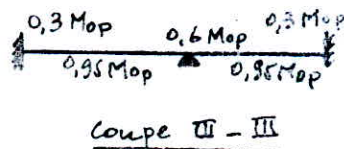 0,3 Mop 0,6 Mop 0,3 Mop
0,95 Mop 0,95 Mop
coupe III - III